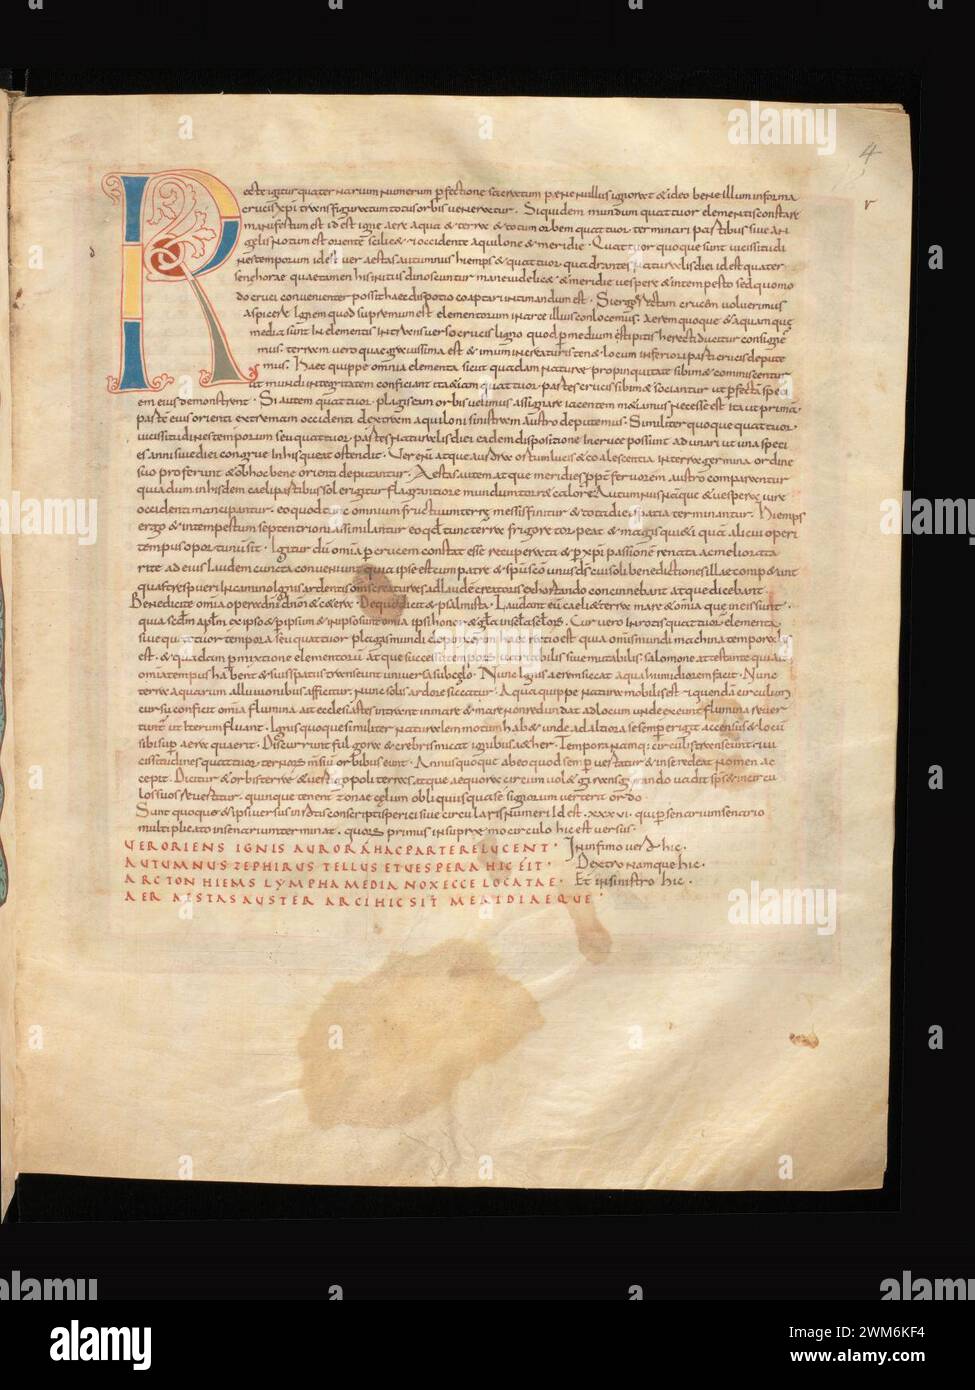 4
r
Recte igitur quaternarium numerum perfectione sacratum pæne nullus ignorat & ideo bene illum informa
crucis xpi transfiguratum totus orbis veneratur. Siquidem mundum quattuor elementis constare
manifestum est id est igne aere aqua & terra & totum orbem quattuor terminari partibus sive an
gelis notum est oriente scilic& & occidente aquilone & meridie. Quattuor quoque sunt vicissitudi
nes temporum id est ver aestas autumnus hiemps & quattuor quadrantes naturalis diei id est quater
senae horae
do cruci convenienter possit haec dispositio coaptari intimandum est. Si ergo rectam crucem volverimus
aspicere ignem quod supremum est elementorum in arce illius conlocemus. Aerem quoque & aquam quę
media sunt in elementis in transverso crucis ligno
mus. terram vero quae gravissima est & imum in creaturis ten& locum inferiori parti crucis depute
mus. Haec quippe omnia elementa sicut quadam naturae propinquitate sibim& commiscentur
ut mundi integritatem conficiant ita etiam quattuor partes crucis sibim& sociantur ut perfecta speci
em eius demonstrent. Si autem quattuor plagis eum orbis velimus assignare iacentem
parte eius orienti extremam occidenti dextram aquiloni sinistram austro deputemus. Similiter quoque quattuor
vicissitudines temporum seu quattuor partes naturalis diei eadem dispositione in cruce possunt adunari ut una speci
es anni sive diei congrue in his queat ostendi. Ver enim atque
suo proferunt & ob hoc bene orienti deputantur. Aestas autem atque meridies propter fervorem austro comparentur
quia dum in hisdem caeli partibus sol erigitur flagrantiore mundum torr& calore. Autumnus namque & vespera iure
occidenti mancipantur. eo quod tunc omnium fructuum terrę messis finitur & totius diei spatia terminantur. Hiemps
ergo & intempestum septentrioni assimilantur eo quod tunc terra frigore torpeat & magis quieti quam alicui operi
tempus oportunum sit. Igitur dum omnia per crucem constat esse recuperata & per xpi passionem renata ac meliorata
rite ad eius laudem cuncta conveniunt quia ipse est cum patre & spiritu sancto unus deus cui soli benedictiones illae competunt
quas tres pueri in camino ignis ardentis omnes creaturas ad laudem creatoris exhortando concinnebant atque dicebant.
Benedicite omnia opera domini dominum & cetera. De quo dicit & psalmista. Laudent eum caeli & terra mare & omnia quae in eis sunt
quia secundum apostolum ex ipso & per ipsum & in ipso sunt omnia ipsi honor & gloria in secula seculorum. Cur vero in rotis quattuor elementa
sive quattuor tempora seu quattuor plagas mundi depinximus haec ratio est quia omnis mundi machina temporalis
est. & quadam permixtione elementorum atque successu temporum vertibilis sive mutabilis. salomone attestante quia
omnia tempus habent & suis spatiis transeunt universa sub cęlo. Nunc ignis aerem siccat aqua humidiorem facit. Nunc
terra aquarum alluvionibus afficitur. nunc solis ardore siccatur. Aqua quippe natura mobilis est
cursu conficit omnia flumina ait ecclesiastes intrant in mare & mare non redundat ad locum unde exeunt flumina rever
tuntur ut iterum fluant. Ignis quoque similiter naturalem motum hab&
sibi super aera quaerit. Discurrunt fulgora & crebris micat ignibus aether. Tempora namque circulis transeunt
cissitudines quattuor ternorum mensium orbibus eunt. Annus quoque ab eo quod semper vertatur & in se redeat nomen ac
cepit. Dicitur & orbis terrae
los suos revertatur. quinque tenent zonae cęlum obliquus qua se signorum verteret ordo.
Sunt quoque & ipsi versus in rotis conscripti sperici sive circularis numeri id est. xxxvi. qui per senarium senario
multiplicato in senarium terminat. quorum primus in supremo circulo hic est versus.
VER ORIENS IGNIS AURORA HAC PARTE RELUCENT. In infimo vero hic.
AUTUMNUS ZEPHIRUS TELLUS ET VESPERA HIC EIT. Dextro namque hic.
ARCTON HIEMS LYMPHA MEDIA NOX ECCE LOCATAE. Et in sinistro hic.
AER AESTAS AUSTER ARCI HIC SIT MERIDIAEQUE.
alamy
Image ID: 2WM6KF4
www.alamy.com